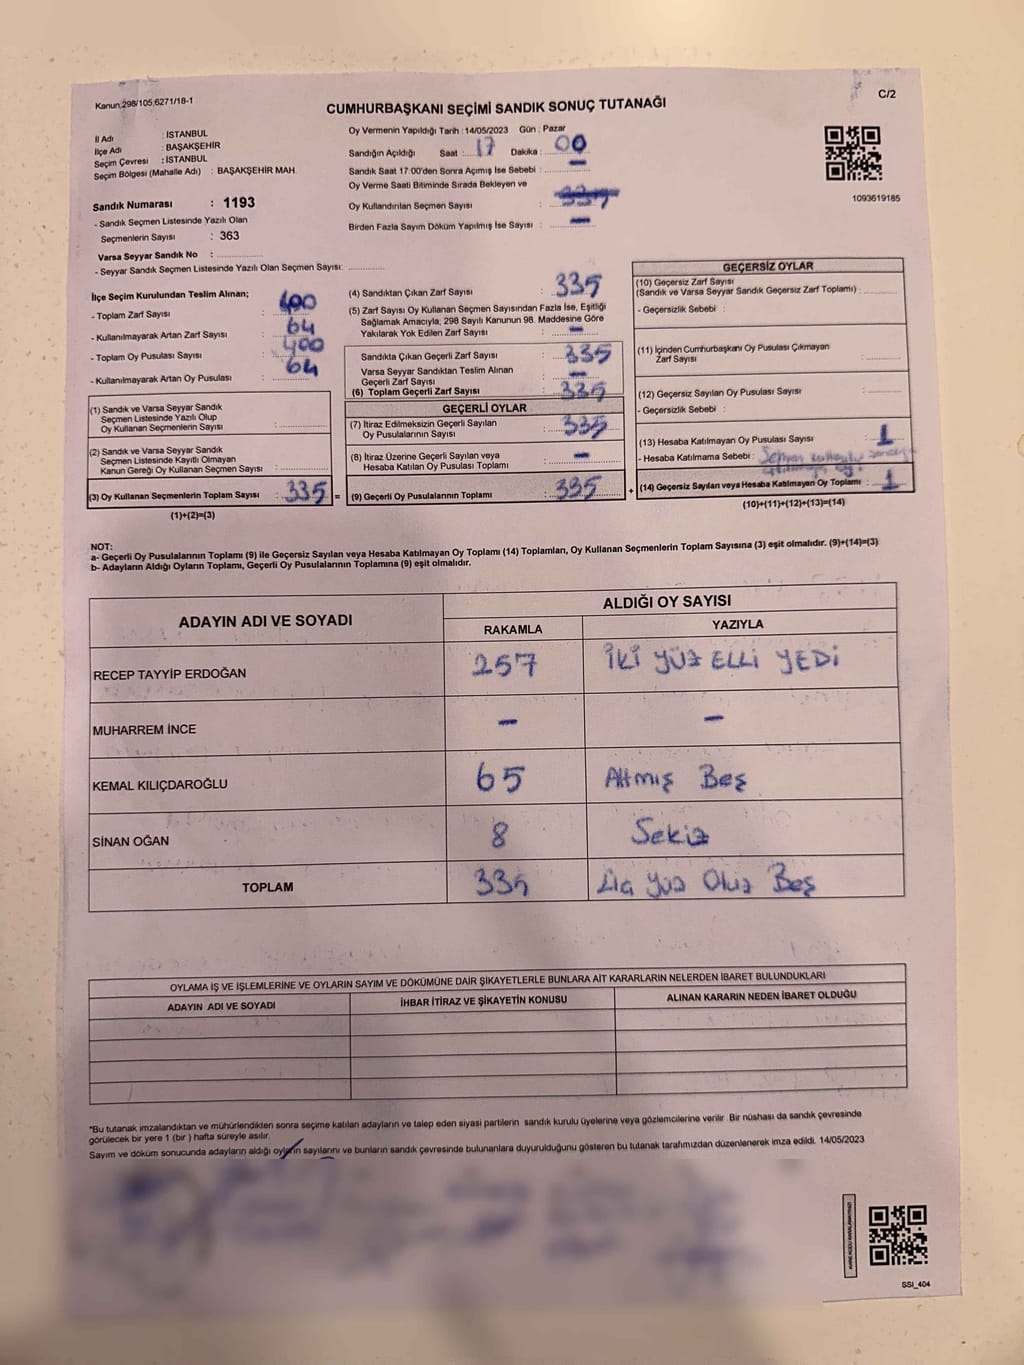 Kanun,298/105,6271/18-1
CUMHURBAŞKANI SEÇİMİ SANDIK SONUÇ TUTANAĞI
C/2
İl Adı : İSTANBUL
İlçe Adı : BAŞAKŞEHİR
Seçim Çevresi : İSTANBUL
Seçim Bölgesi (Mahalle Adı) : BAŞAKŞEHİR MAH.
Sandık Numarası : 1193
- Sandık Seçmen Listesinde Yazılı Olan
Seçmenlerin Sayısı : 363
Varsa Seyyar Sandık No :
- Seyyar Sandık Seçmen Listesinde Yazılı Olan Seçmen Sayısı:
Oy Vermenin Yapıldığı Tarih : 14/05/2023 Gün : Pazar
Sandığın Açıldığı Saat : 17 Dakika : 00
Sandık Saat 17:00'den Sonra Açımış İse Sebebi : -
Oy Verme Saati Bitiminde Sırada Bekleyen ve
Oy Kullandırılan Seçmen Sayısı :
Birden Fazla Sayım Döküm Yapılmış İse Sayısı : -
1093619185
İlçe Seçim Kurulundan Teslim Alınan;
- Toplam Zarf Sayısı : 400
- Kullanılmayarak Artan Zarf Sayısı : 64
- Toplam Oy Pusulası Sayısı : 400
- Kullanılmayarak Artan Oy Pusulası : 64
(1) Sandık ve Varsa Seyyar Sandık
Seçmen Listesinde Yazılı Olup
Oy Kullanan Seçmenlerin Sayısı :
(2) Sandık ve Varsa Seyyar Sandık
Seçmen Listesinde Kayıtlı Olmayan
Kanun Gereği Oy Kullanan Seçmen Sayısı :
(3) Oy Kullanan Seçmenlerin Toplam Sayısı : 335 =
(1)+(2)=(3)
(4) Sandıktan Çıkan Zarf Sayısı : 335
(5) Zarf Sayısı Oy Kullanan Seçmen Sayısından Fazla İse, Eşitliği
Sağlamak Amacıyla, 298 Sayılı Kanunun 98. Maddesine Göre
Yakılarak Yok Edilen Zarf Sayısı : -
Sandıkta Çıkan Geçerli Zarf Sayısı : 335
Varsa Seyyar Sandıktan Teslim Alınan
Geçerli Zarf Sayısı : -
(6) Toplam Geçerli Zarf Sayısı : 335
GEÇERLİ OYLAR
(7) İtiraz Edilmeksizin Geçerli Sayılan
Oy Pusulalarının Sayısı : 335
(8) İtiraz Üzerine Geçerli Sayılan veya
Hesaba Katılan Oy Pusulası Toplamı : -
(9) Geçerli Oy Pusulalarının Toplamı : 335 +
GEÇERSİZ OYLAR
(10) Geçersiz Zarf Sayısı
(Sandık ve Varsa Seyyar Sandık Geçersiz Zarf Toplamı) :
- Geçersizlik Sebebi :
(11) İçinden Cumhurbaşkanı Oy Pusulası Çıkmayan
Zarf Sayısı :
(12) Geçersiz Sayılan Oy Pusulası Sayısı :
- Geçersizlik Sebebi :
(13) Hesaba Katılmayan Oy Pusulası Sayısı : 1
- Hesaba Katılmama Sebebi :
(14) Geçersiz Sayılan veya Hesaba Katılmayan Oy Toplamı : 1
(10)+(11)+(12)+(13)=(14)
NOT:
a- Geçerli Oy Pusulalarının Toplamı (9) ile Geçersiz Sayılan veya Hesaba Katılmayan Oy Toplamı (14) Toplamları, Oy Kullanan Seçmenlerin Toplam Sayısına (3) eşit olmalıdır. (9)+(14)=(3)
b- Adayların Aldığı Oyların Toplamı, Geçerli Oy Pusulalarının Toplamına (9) eşit olmalıdır.
ADAYIN ADI VE SOYADI
ALDIĞI OY SAYISI
RAKAMLA YAZIYLA
RECEP TAYYİP ERDOĞAN 257 İKİ YÜZ ELLİ YEDİ
MUHARREM İNCE - -
KEMAL KILIÇDAROĞLU 65 Altmış Beş
SİNAN OĞAN 8 Sekiz
TOPLAM 335 Üç Yüz Otuz Beş
OYLAMA İŞ VE İŞLEMLERİNE VE OYLARIN SAYIM VE DÖKÜMÜNE DAİR ŞİKAYETLERLE BUNLARA AİT KARARLARIN NELERDEN İBARET BULUNDUKLARI
ADAYIN ADI VE SOYADI İHBAR İTİRAZ VE ŞİKAYETİN KONUSU ALINAN KARARIN NEDEN İBARET OLDUĞU
*Bu tutanak imzalandıktan ve mühürlendikten sonra seçime katılan adayların ve talep eden siyasi partilerin sandık kurulu üyelerine veya gözlemcilerine verilir. Bir nüshası da sandık çevresinde
görülecek bir yere 1 (bir ) hafta süreyle asılır.
Sayım ve döküm sonucunda adayların aldığı oyların sayılarını ve bunların sandık çevresinde bulunanlara duyurulduğunu gösteren bu tutanak tarafımızdan düzenlenerek imza edildi. 14/05/2023
SSI_404